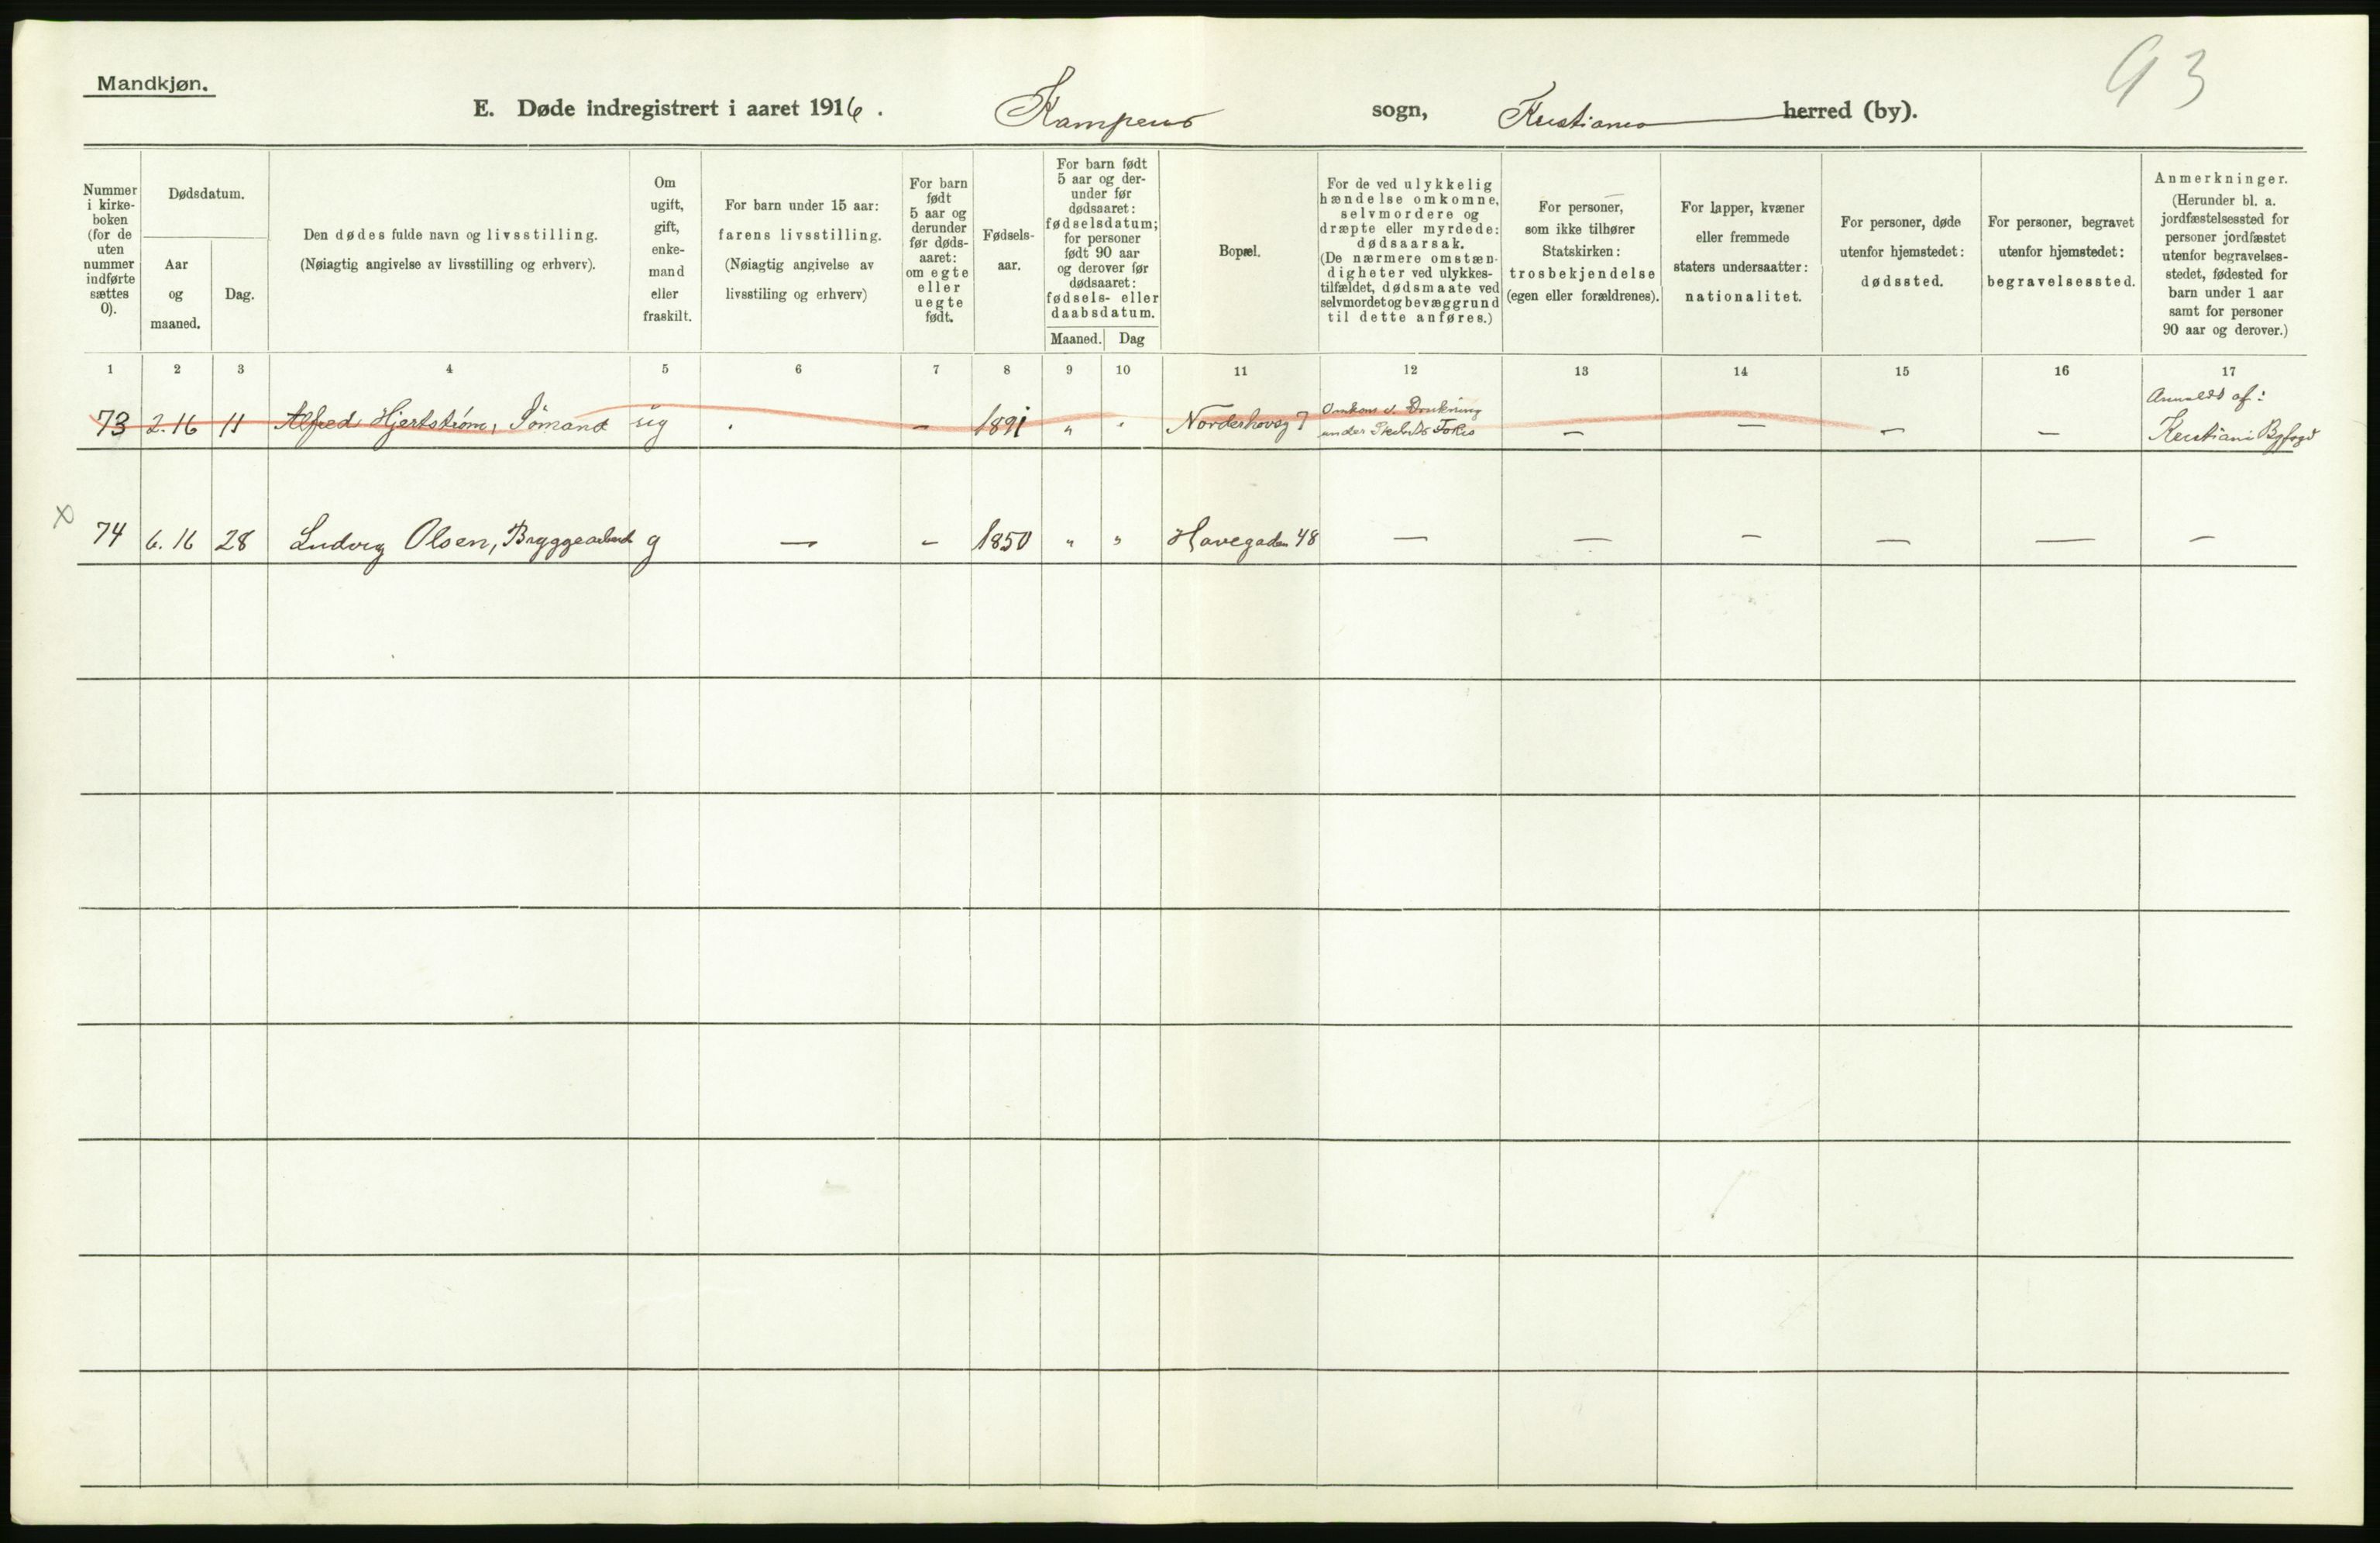 Mandkjøn.
93
E. Døde indregistrert i aaret 1916. Kampens sogn, Kristiania herred (by).
Nummer i kirke-boken (for de uten nummer indførte sættes 0).
Dødsdatum.
Aar og maaned.
Dag.
Den dødes fulde navn og livsstilling.
(Nøiagtig angivelse av livsstilling og erhverv).
Om ugift, gift, enke-mand eller fraskilt.
For barn under 15 aar:
farens livsstilling.
(Nøiagtig angivelse av
livsstiling og erhverv)
For barn født 5 aar og derunder før døds-aaret: om egte eller uegte født.
Fødsels-aar.
For barn født 5 aar og der-under før dødsaaret: fødselsdatum; for personer født 90 aar og derover før dødsaaret: fødsels- eller daabsdatum.
Maaned. Dag
Bopæl.
For de ved ulykkelig hændelse omkomne, selvmordere og dræpte eller myrdede: dødsaarsak. (De nærmere omstæn-digheter ved ulykkes-tilfældet, dødsmaate ved selvmordet og bevæggrund til dette anføres.)
For personer, som ikke tilhører Statskirken: trosbekjendelse (egen eller forældrenes).
For lapper, kvæner eller fremmede staters undersaatter: nationalitet.
For personer, døde utenfor hjemstedet: dødssted.
For personer, begravet utenfor hjemstedet: begravelsessted.
Anmerkninger.
(Herunder bl. a. jordfæstelsessted for personer jordfæstet utenfor begravelses-stedet, fødested for barn under 1 aar samt for personer 90 aar og derover.)
1 2 3 4 5 6 7 8 9 10 11 12 13 14 15 16 17
73 2.16 11 Alfred Hjertstrøm, Sömand ug - 1891 " " Norderhovsg 7 Omkom v. Drukning under - - - - Anmeldt af: Kristiania Byfogd
x 74 6.16 28 Ludvig Olsen, Bryggearbeid g - - 1850 " " Havegaden 48 - - - - - -